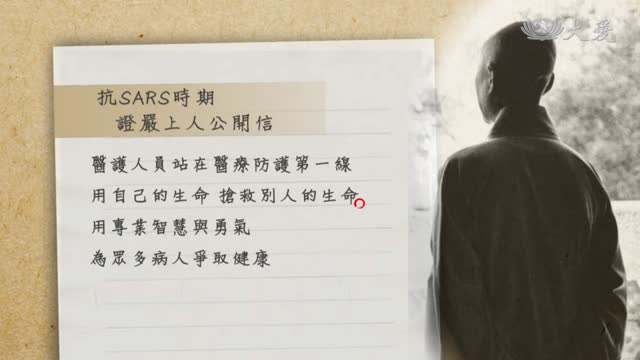 大愛
抗SARS時期
證嚴上人公開信
醫護人員站在醫療防護第一線
用自己的生命 搶救別人的生命
用專業智慧與勇氣
為眾多病人爭取健康